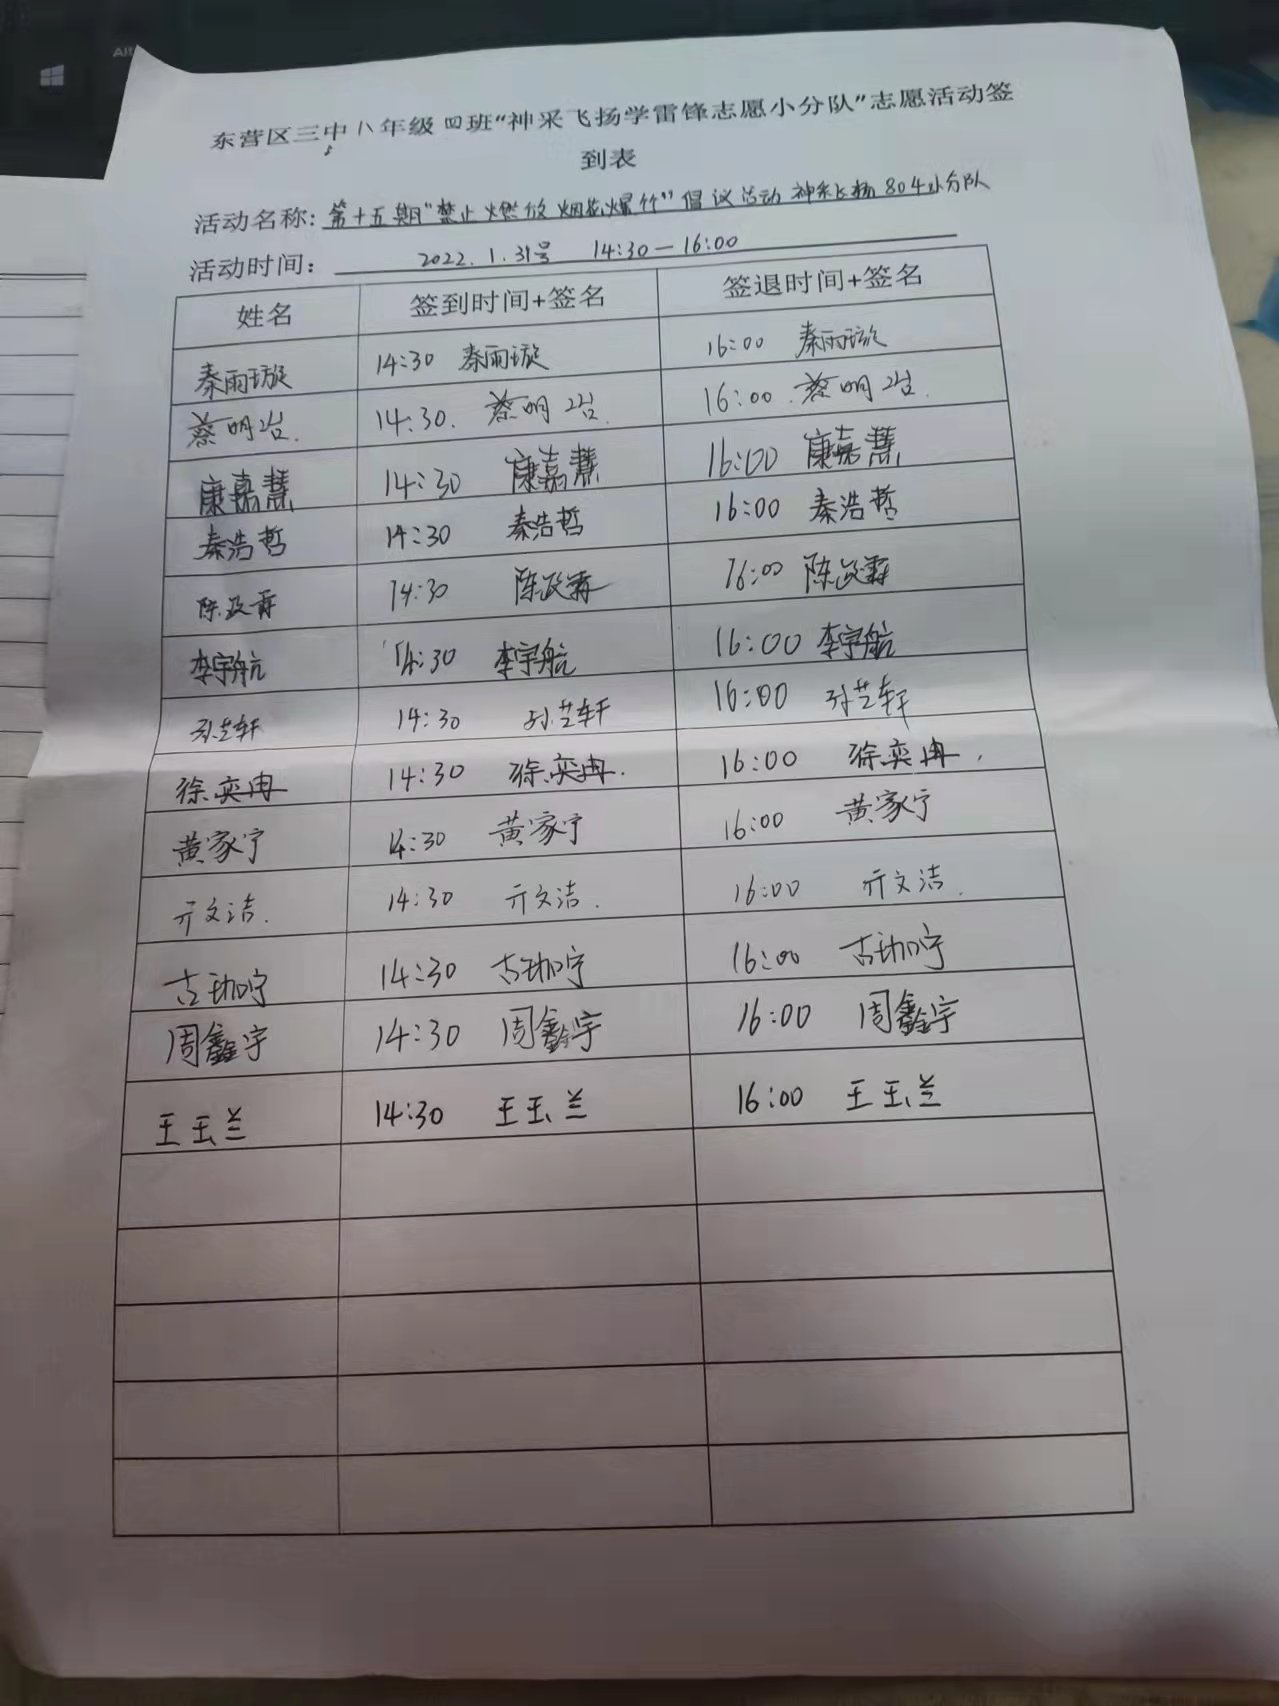 东营区三中八年级四班“神采飞扬学雷锋志愿小分队”志愿活动签
到表
活动名称：第十五期“禁止燃放烟花爆竹”倡议活动 神采飞扬804小分队
活动时间： 2022.1.31号 14:30—16:00
姓名 签到时间+签名 签退时间+签名
秦雨璇 14:30 秦雨璇 16:00 秦雨璇
蔡明岩. 14:30. 蔡明岩. 16:00. 蔡明岩.
康嘉慧 14:30 康嘉慧 16:00 康嘉慧
秦浩哲 14:30 秦浩哲 16:00 秦浩哲
陈政霖 14:30 陈政霖 16:00 陈政霖
李宇航 14:30 李宇航 16:00 李宇航
孙艺轩 14:30 孙艺轩 16:00 孙艺轩
徐奕冉 14:30 徐奕冉. 16:00 徐奕冉.
黄家宁 14:30 黄家宁 16:00 黄家宁
亓文洁. 14:30 亓文洁. 16:00 亓文洁.
古珈宁 14:30 古珈宁 16:00 古珈宁
周鑫宇 14:30 周鑫宇 16:00 周鑫宇
王玉兰 14:30 王玉兰 16:00 王玉兰